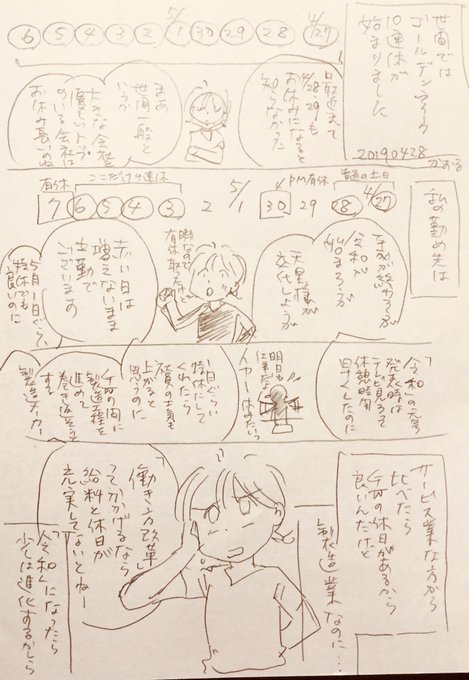 世間では
ゴールデンウィーク
10連休が
始まりました
20190428
かおる
4/27 28 29 30 5/1 2 3 4 5 6
日程迄って
4/28、29も
お休みになると
知らなかった
まあ
世間一般と
いうか
大きな会社や
優しいトップ
のいる会社は
お休み長いのね
私の勤め先は
普通の土日
4/27 28 29 PM有休 30 5/1 2 3 4 5 6 7
ここだけ4連休
有休
平成が終わろうが
令和が
始まろうが
天皇様が
交代しようが
暇なので
有休取るけど
赤い日は
増えないまま
出勤で
ございます
5月1日ぐらい
特休でも
良いのに
「令和」の元号
発表時は
テレビ見るって
休憩時間
早くしたのに
明日も
仕事だ
1日ぐらい
特休にして
くれたら
社員の士気も
上がると
思うのに
平成の間に
製造工程を
進めて
巻き返そうと
する
製造メーカー
サービス業な方から
比べたら
平日の休日があるから
良いんだけど
製造業なのに…
「働き方改革」
ってかかげるなら
給料と休日が
充実してないとねー
「令和」になったら
少しは進化するかしら